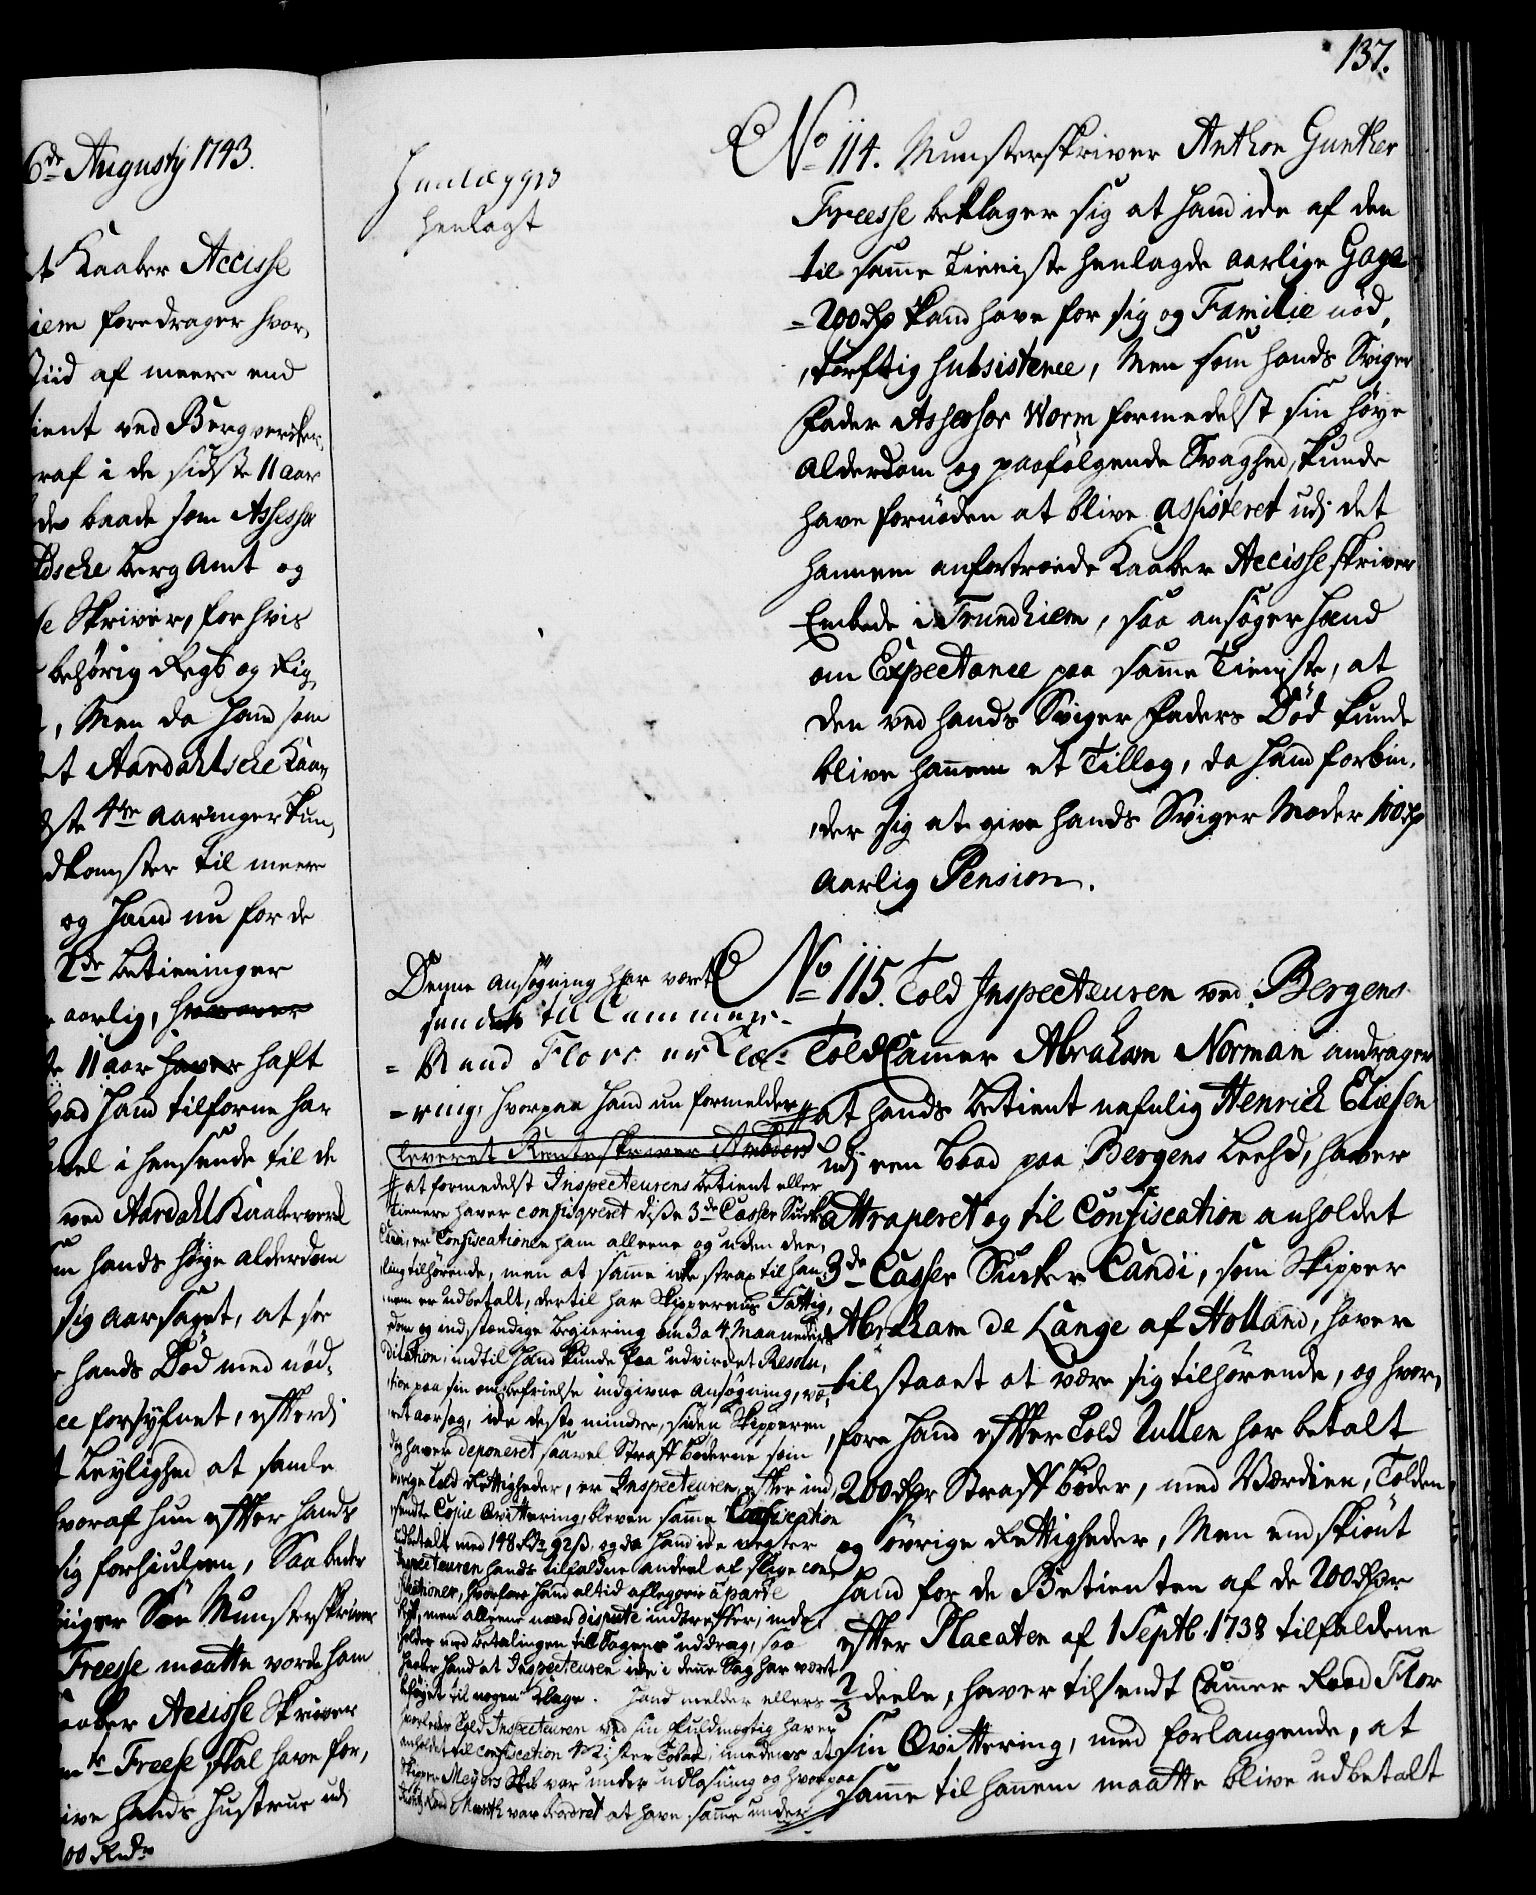 6de Augusty 1743.
t Kaaber Accisse
iem foredrager hvor,
Tiid af meere end
tient ved Bergverker,
raf i de sidste 11 aar
de baade som Assessor
dsche berg Amt og
e Skriver, for hvis
behørig Regsk og Rig,
, Men da hand som
et Aardahlsche Kaa,
dste 4re aaringer kun,
dkomster til meere
og hand nu for de
2de betieninger
aarlig, hvorover
te 11 aar haver haft
hvad hand tilforne har
vel i henseende til de
ved Aardahls Kaaberverk
hands høye alderdom
sig aarsaget, at see
hands Død med nød,
ce forsyfnet, efterdi
t leylighed at samle
hvoraf hun efter hands
sig forhielpen, Saa beder
Sviger Søn Munsterskriver
Freesse maatte vorde ham
Kaaber Accisse Skriver
Freese skal have for,
give hands Hustrue udi
100 Rdr
137.
Henlægges
henlagt
No 114. Munsterskriver Anthon Gunther
Freesse beklager sig at hand icke af den
til samme Tieniste henlagde aarlige Gage
200 Rdr kand have for sig og Familie nød,
,tørftig subsistence, Men som hands Sviger
Fader Assessor Worm formedelst sin høye
Alderdom og paafølgende Svaghed, kunde
have fornøden at blive assisteret udj det
hannem anfortroede Kaaber Accisse skriver
Embede i Trundhiem, saa ansøger hand
om Expectance paa samme Tieniste, at
den ved hands Sviger Faders Død kunde
blive hannem et Tillæg, da hand forbin,
,der sig at give hands Sviger Moder 100 Rdr
aarlig Pension.
Denne ansøgning har været
sendt til Cammer-
= Raad Flors erklæ-
=ring, hvorpaa hand nu formelder #
leveret Renteskriver
# at formedelst Inspecteurens betient eller
tienere haver confisqveret disse 3de Casser Sucker
Candi, er Confiscationen ham alleene og uden dee,
ling tilhørende, men at samme icke strax til han,
nem er udbetalt, dertil har Skipperens Fattig,
dom og indstændige begiering om 3 a 4 Maaneders
Dilation, indtil hand kunde faa udvirket Resolu,
tion paa sin om befrielse indgivne ansøgning, væ,
ret aarsag, icke desto mindre, siden Skipperen
dog haver deponeret saavel Straff bøderne som
øvrige Told Rettigheder, er Inspecteuren, efter ind,
sendte Copie Qvittering, bleven samme Confiscation
udbetalt med 148 Rdr 92 s, og da hand icke negter
Inspecteuren hands tilfaldne andeel af slige con,
fiscationer, hvorfore hand altid aflegger à parte
men alleene naar dispute indtreffer, inde,
holder med betalingen til Sagens uddrag, saa
haaber hand at Inspecteuren icke i denne Sag har vært
beføjet til nogen Klage. Hand melder ellers
hvorledes Told Inspecteuren ved sin fuldmægtig haver
anholdet til confiscation Tobak, imedens at
Skipper Meyers Skib var under udlosning og hvorpaa
var fordret at have samme under
No 115. Told Inspecteuren ved Bergens
Told Camer Abraham Norman andrager
at hands betient nafnlig Henrich Eliesen
udj een baad paa Bergens Leehd, haver
attraperet og til Confiscation anholdet
3de Casser Sucker Candi, som Skipper
Abraham de Lange af Holland, haver
tilstaaet at være sig tilhørende, og hvor,
,fore hand efter Told Rullen har betalt
200 Rdr Straff bøder, med Værdien, Tolden
og øvrige Rettigheder, Men endskiønt
hand for de Betienten af de 200 Rdr
efter Placaten af 1 Septb. 1738 tilfaldene
2/3 deele, haver tilsendt Cammer Raad Flor
sin Qvittering, med forlangende, at
samme til hannem maatte blive udbetalt